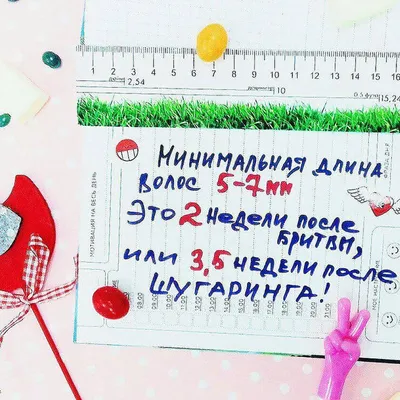 1 2 3 4 5 6 7 8 9 10 11 12 13 14 15 16
2,54
10
15,24
МИНИМАЛЬНАЯ ДЛИНА
ВОЛОС 5-7 мм
ЭТО 2 НЕДЕЛИ ПОСЛЕ
БРИТВЫ,
ИЛИ 3,5 НЕДЕЛИ ПОСЛЕ
ШУГАРИНГА!
МОТИВАЦИЯ НА ВЕСЬ ДЕНЬ